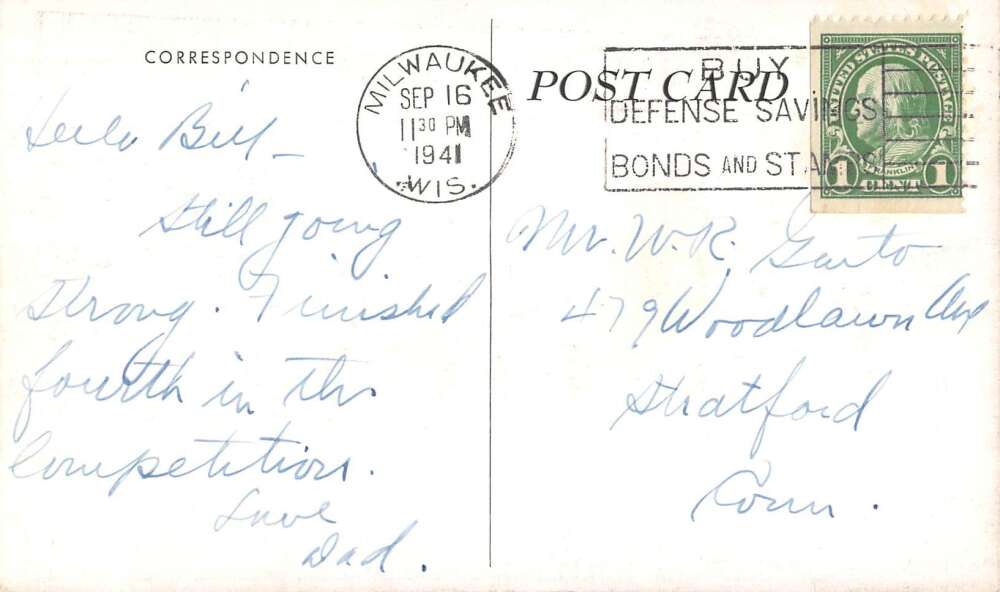 CORRESPONDENCE
POST CARD
MILWAUKEE
SEP 16
11 30 PM
1941
WIS.
BUY
DEFENSE SAVINGS
BONDS AND STAMPS
UNITED STATES POSTAGE
1 FRANKLIN 1
Hello Bill –
Still going
strong. Finished
fourth in the
competition.
Love
Dad.
Mr. W. R.
479 Woodlawn Ave
Stratford
Conn.